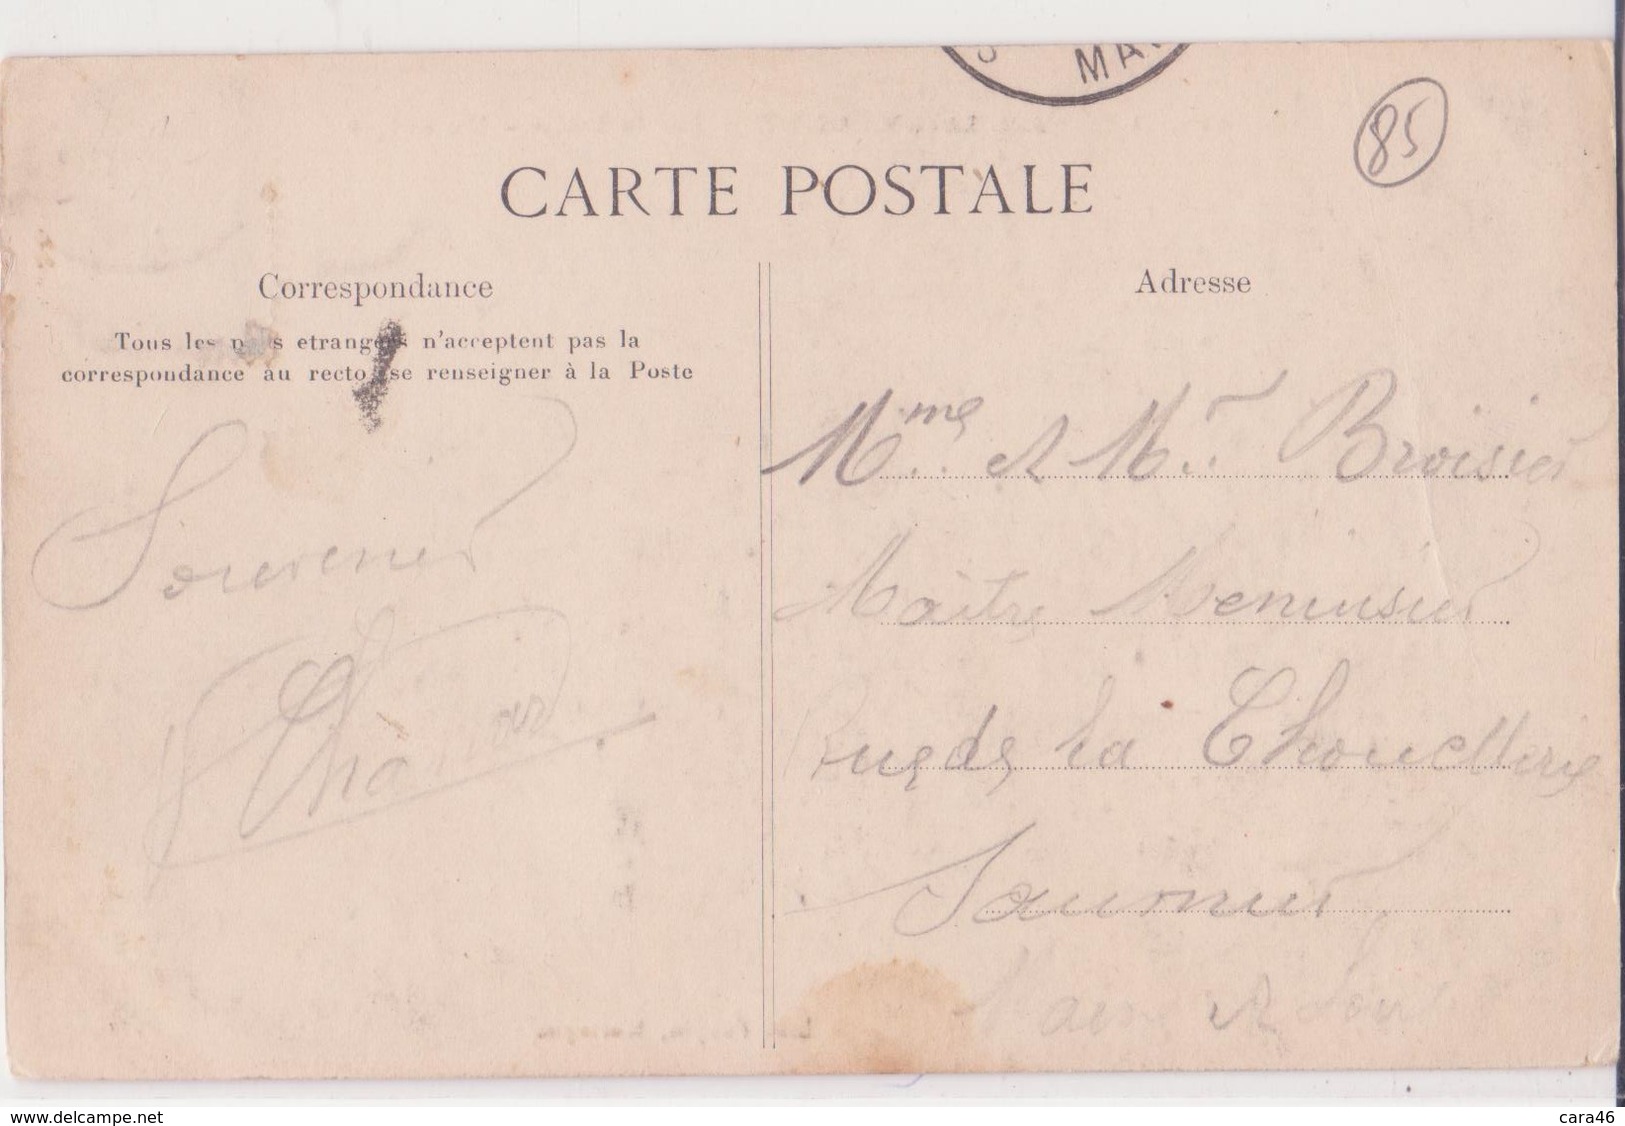 MA
85
CARTE POSTALE
Correspondance
Tous les pays etrangers n'acceptent pas la
correspondance au recto se renseigner à la Poste
Souvenir
Adresse
Mme et Mr Broisier
Maître Menuisier
Rue de la Chouetterie
Saumur
Maine et Loire
delcampe.net
cara46